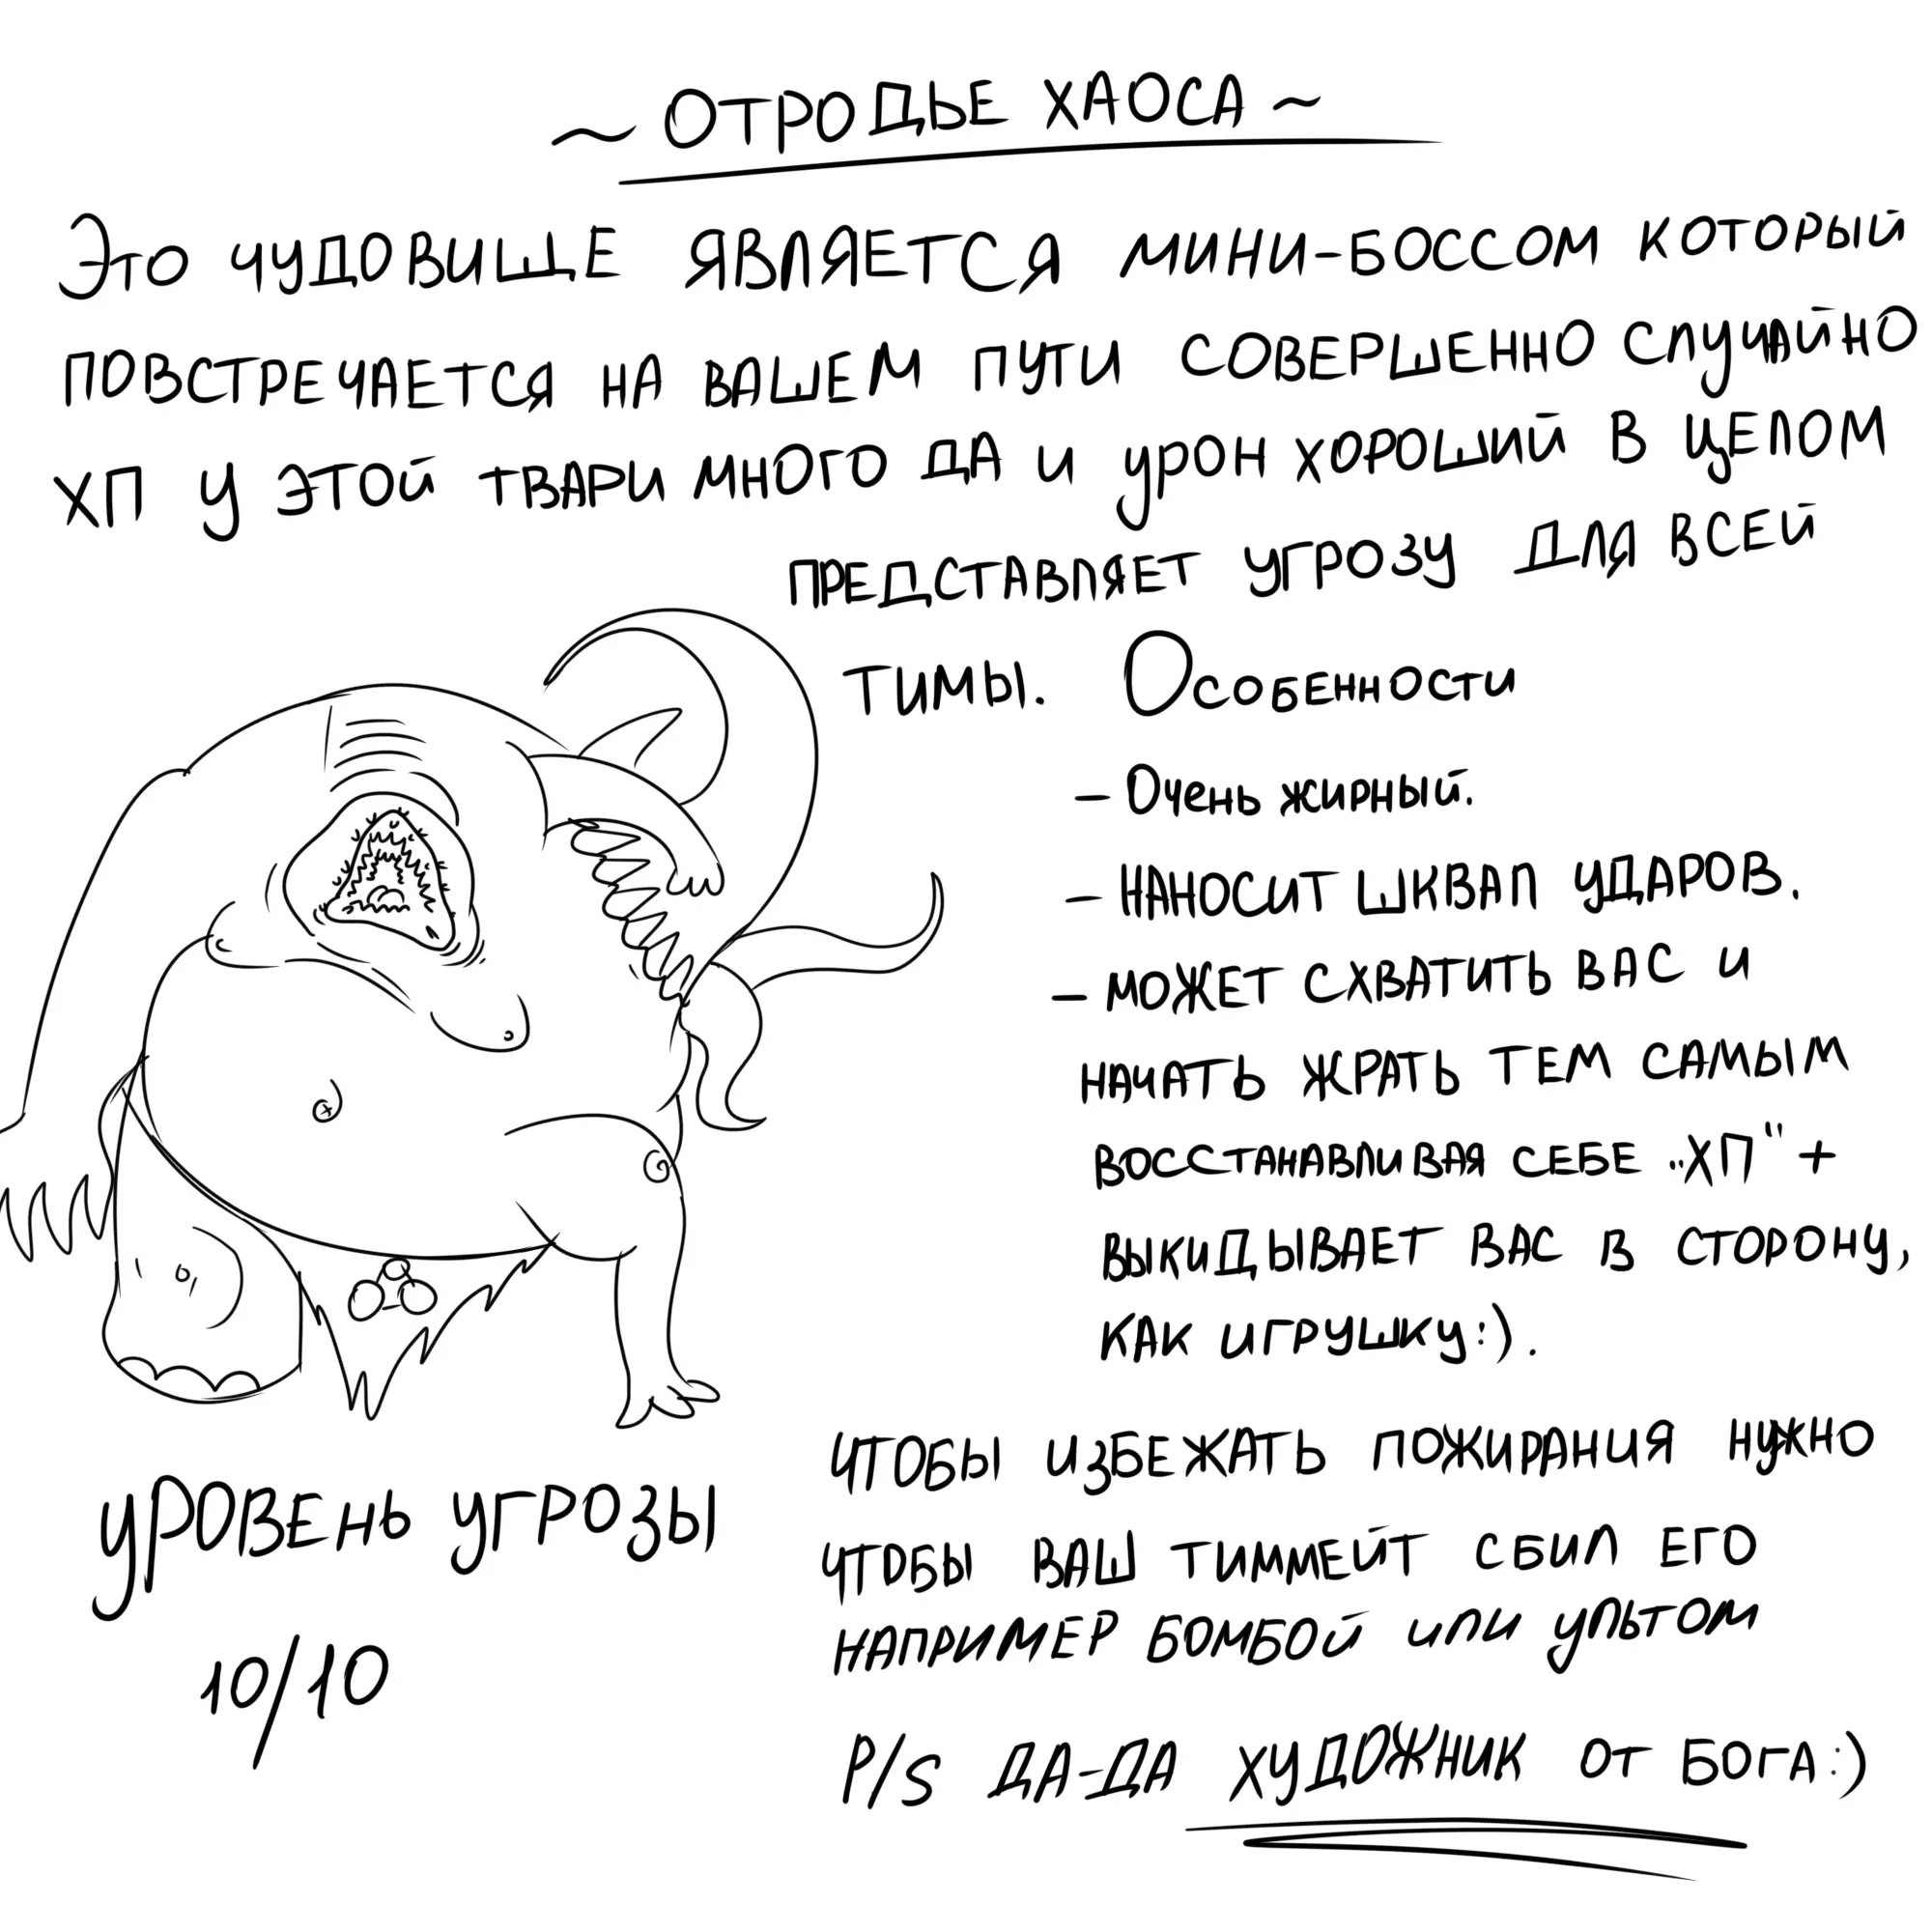 ~ ОТРОДЬЕ ХАОСА ~
Это чудовище является мини-боссом который
повстречается на вашем пути совершенно случайно
ХП у этой твари много да и урон хороший в целом
представляет угрозу для всей
тимы. Особенности
- Очень жирный.
- Наносит шквал ударов.
- Может схватить вас и
начать жрать тем самым
восстанавливая себе „ХП“ +
выкидывает вас в сторону,
как игрушку:).
Чтобы избежать пожирания нужно
чтобы ваш тиммейт сбил его
например бомбой или ультом
P/S ДА-ДА ХУДОЖНИК ОТ БОГА:)
Уровень угрозы
10/10